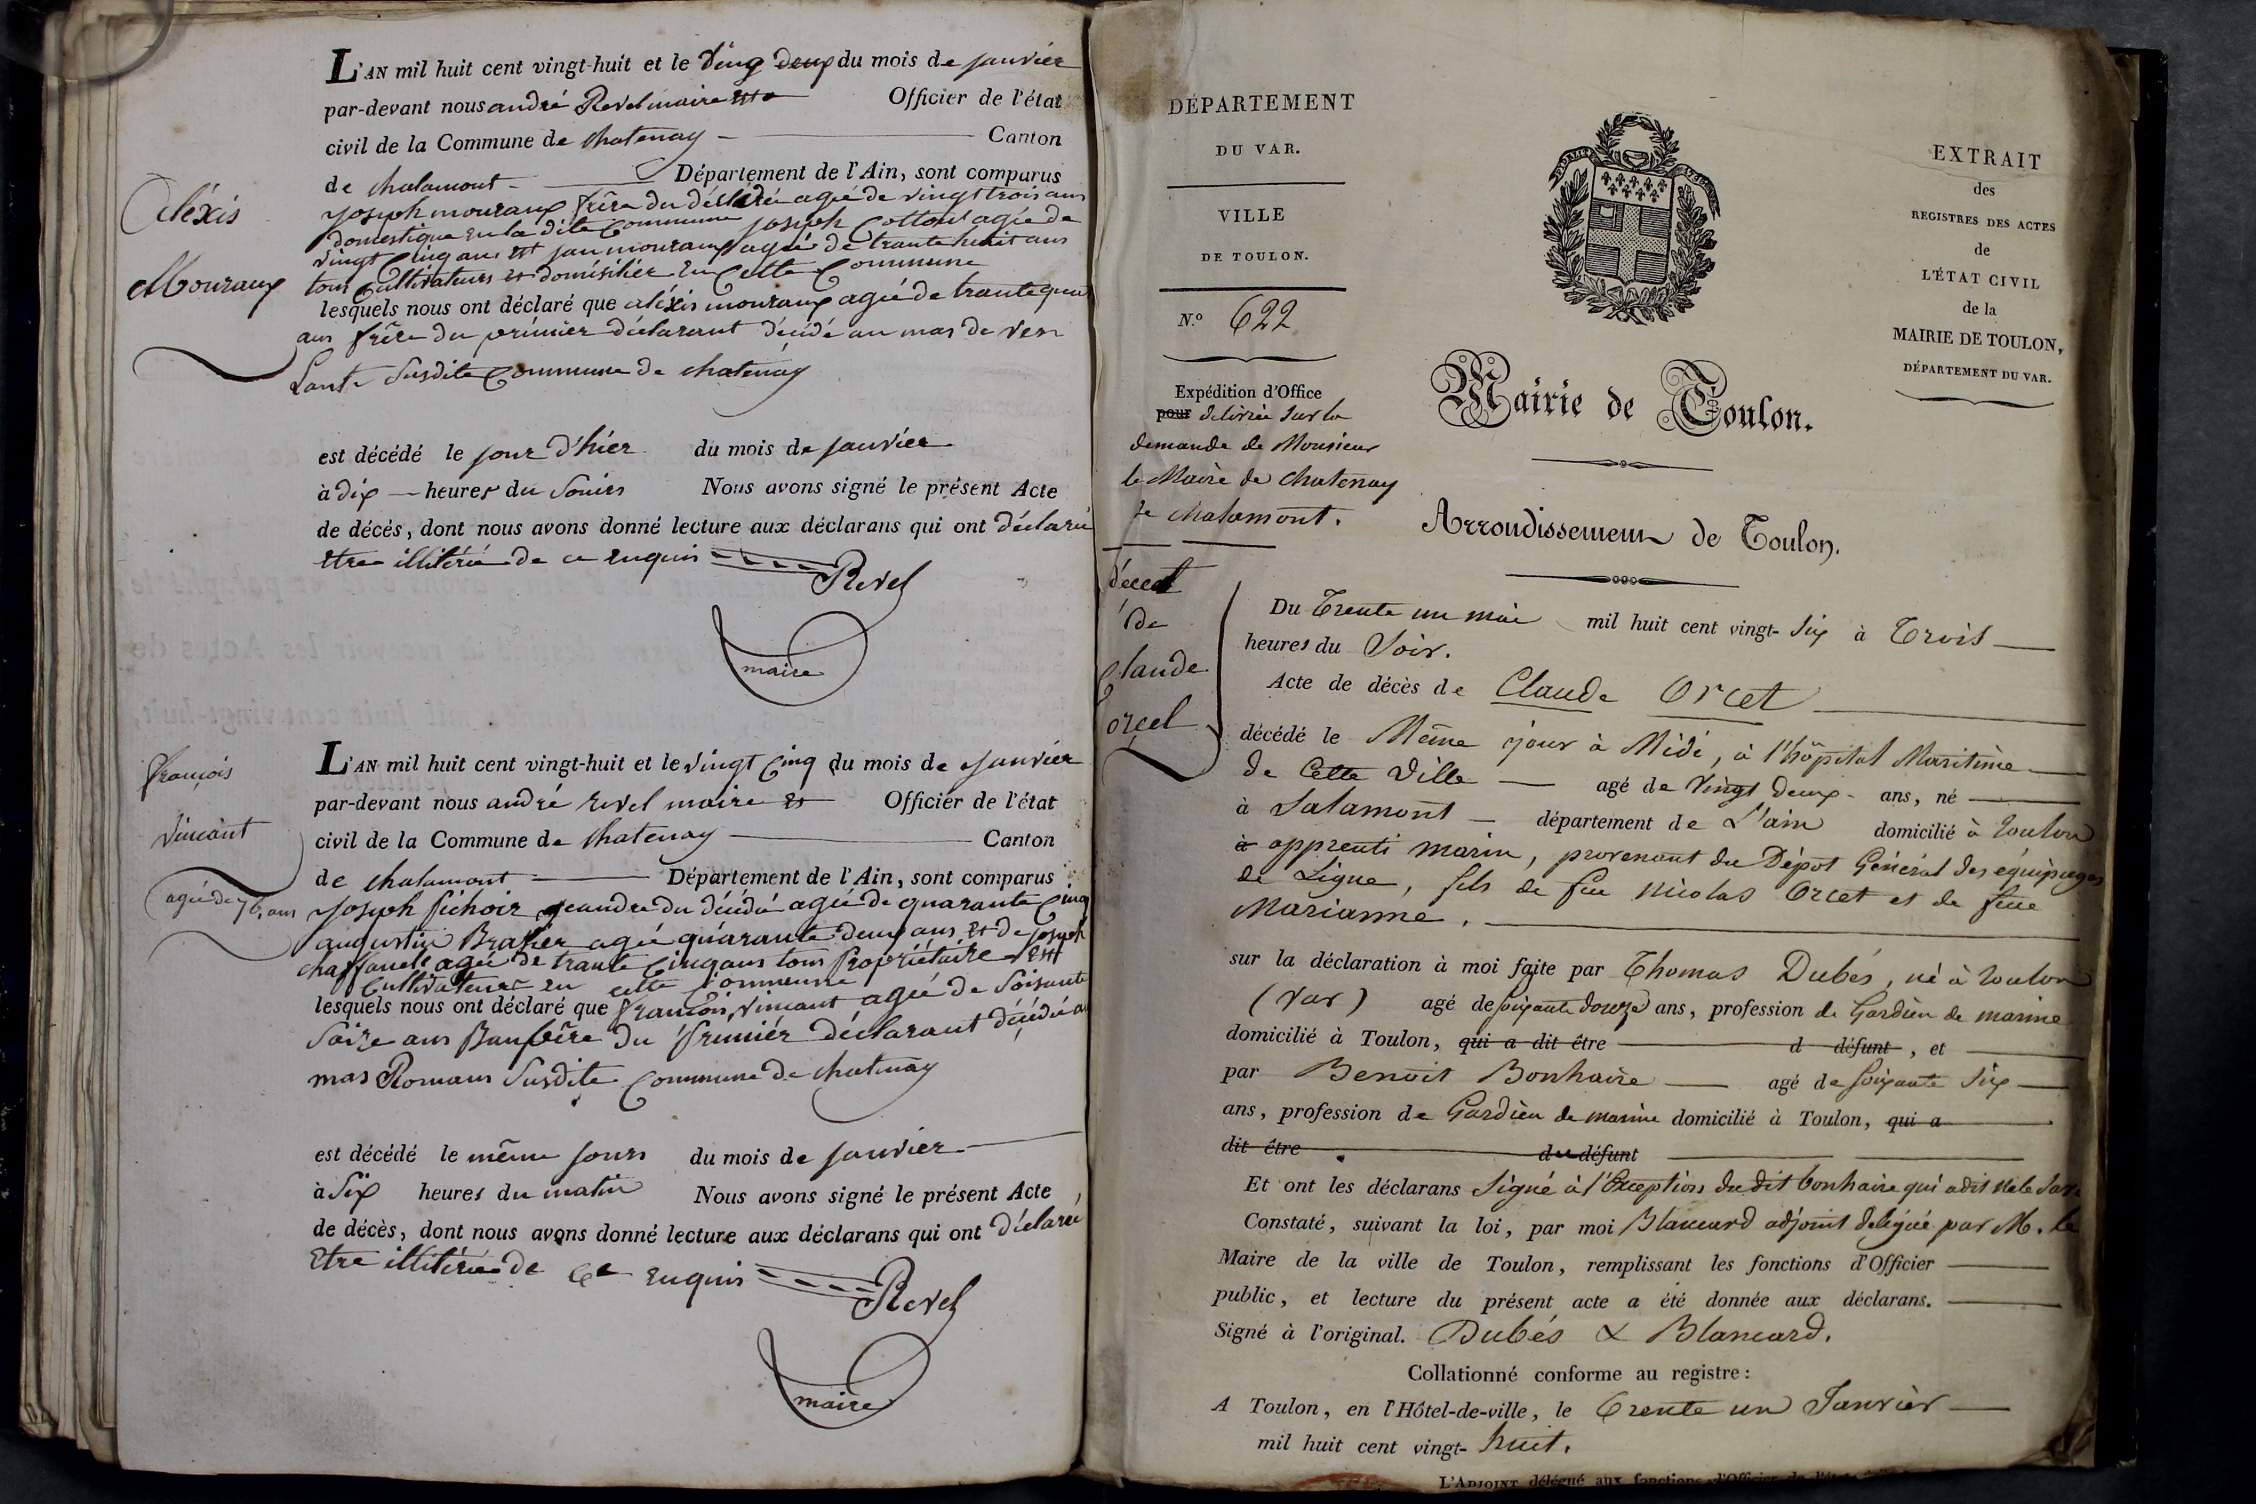 L'AN mil huit cent vingt-huit et le Ving deux du mois de janvier
par-devant nous andré Revel maire et Officier de l'état
civil de la Commune de Chatenay Canton
de chalamont Département de l'Ain, sont comparus
joseph mouraux frère du décédé agé de vingt trois ans
domestique en la dite Commune joseph Cottout agé de
vingt Cinq ans et jan mouraux agé de trante huit ans
tous Cultivateurs et domisiliér en Cette Commune
lesquels nous ont déclaré que aléxis mouraux agé de trante quat
ans frère du prémier déclarant décédé au mas de ven
Lante Susdite Commune de chatenay
Aléxis
Mouraux
est décédé le jour d'hier du mois de janvier
à dix heures du Soirs Nous avons signé le présent Acte
de décès, dont nous avons donné lecture aux déclarans qui ont déclaré
etre illitéré de ce enquis
Revel
maire
L'AN mil huit cent vingt-huit et le vingt Cinq du mois de janvier
par-devant nous andré revel maire et Officier de l'état
civil de la Commune de Chatenay Canton
de chalamont Département de l'Ain, sont comparus
joseph fichoir geandre du décédé agé de quarante Cinq
augustin Brasier agé quarante deux ans et de joseph
chaffanel agé de trante Cinq ans tous Propriétaire et
Cultivateurs en cette Commune
lesquels nous ont déclaré que françois Vincant agé de Soisante
Saize ans Beaupère du Prémiér déclarant décédé au
mas Romans Susdite Commune de chatenay
françois
Vincant
agé de 76 ans
est décédé le même jours du mois de janvier
à Six heures du matin Nous avons signé le présent Acte
de décès, dont nous avons donné lecture aux déclarans qui ont déclaré
Etre illitéré de Ce enquis
Revel
maire
DÉPARTEMENT
DU VAR.
VILLE
DE TOULON.
N.º 622
Expédition d'Office
pour délivrée sur la
demande de Monsieur
le Maire de Chatenay
de chalamont.
EXTRAIT
des
REGISTRES DES ACTES
de
L'ÉTAT CIVIL
de la
MAIRIE DE TOULON,
DÉPARTEMENT DU VAR.
Mairie de Toulon.
Arrondissement de Toulon.
décet
de
Claude
orcel
Du Trente un mai mil huit cent vingt-six à Trois
heures du Soir.
Acte de décès de Claude Orcet
décédé le Même jour à Midi, à l'hôpital Maritime
de Cette Ville agé de Vingt deux ans, né
à Salamont département de L'ain domicilié à Toulon
à apprenti marin, provenant du Dépôt Général des équipages
de Ligne, fils de feu Nicolas Orcet et de feue
Marianne.
sur la déclaration à moi faite par Thomas Dubés, né à Toulon
(Var) agé de soixante douze ans, profession de Gardien de marine
domicilié à Toulon, qui a dit être d défunt, et
par Benoit Bonhaire agé de soixante six
ans, profession de Gardien de marine domicilié à Toulon, qui a
dit être du défunt
Et ont les déclarans Signé à l'Exception du dit bonhaire qui a dit ne le Sav.
Constaté, suivant la loi, par moi Blancard adjoint délégué par M. le
Maire de la ville de Toulon, remplissant les fonctions d'Officier
public, et lecture du présent acte a été donnée aux déclarans.
Signé à l'original. Dubés & Blancard.
Collationné conforme au registre:
A Toulon, en l'Hôtel-de-ville, le Trente un Janvier
mil huit cent vingt-huit.
L'ADJOINT délégué aux fonctions d'Officier de l'état